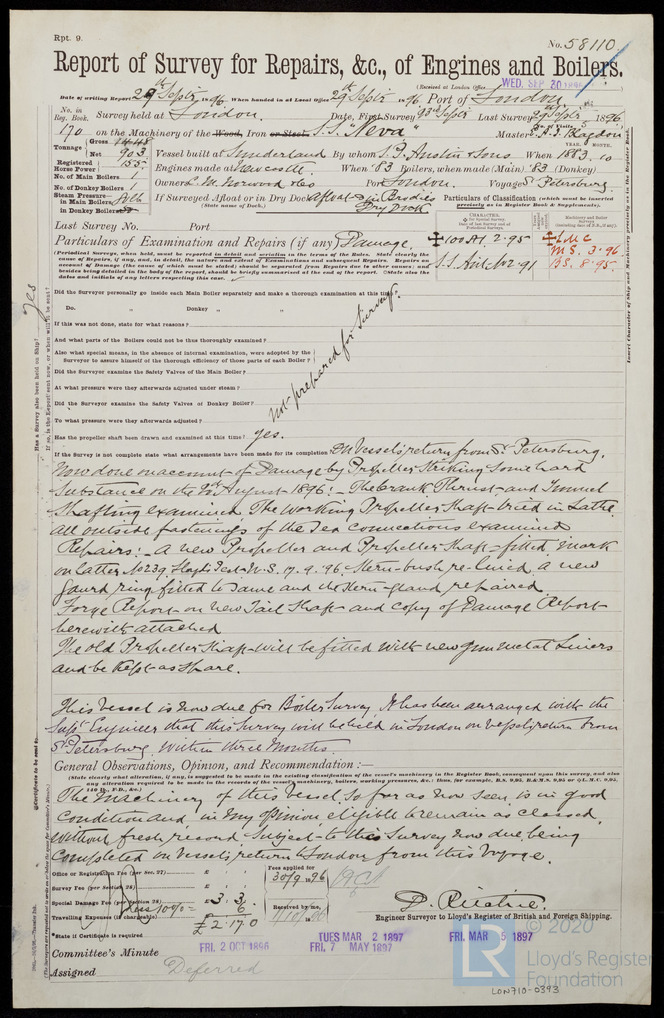 Rpt. 9.
No. 58110
Report of Survey for Repairs, &c., of Engines and Boilers.
(Received at London Office WED. SEP 30 1896
Date of writing Report 29th Septr 1896. When handed in at Local Office 29th Septr 1896 Port of London
No. in Reg. Book. Survey held at London. Date, First Survey Septr Last Survey 29th Septr 1896
170 on the Machinery of the Wood, Iron or Steel S.S. "Neva" Master
Tonnage Gross 1448
Net 903 Vessel built at Sunderland By whom S.P. Austin & Sons When 1883. 10
YEAR. MONTH.
Registered Horse Power 155 Engines made at Newcastle When '83 Boilers, when made (Main) '83 (Donkey)
No. of Main Boilers 1 Owners C.M. Norwood & Co Port London. Voyage St Petersburg.
No. of Donkey Boilers 1
Steam Pressure in Main Boilers
in Donkey Boilers
If Surveyed Afloat or in Dry Dock afloat & in Brodies Dry Dock
(State name of Dock.)
Particulars of Classification (which must be inserted precisely as in Register Book & Supplements).
Last Survey No. Port
Particulars of Examination and Repairs (if any) Damage.
100A1. 2.95
S.S. No. 2-91
LMC
M.S. 3.96
B.S. 8.95.
Did the Surveyor personally go inside each Main Boiler separately and make a thorough examination at this time?
Do. " Donkey " "
If this was not done, state for what reasons?
And what parts of the Boilers could not be thus thoroughly examined?
Also what special means, in the absence of internal examination, were adopted by the
Surveyor to assure himself of the thorough efficiency of those parts of each Boiler?
Did the Surveyor examine the Safety Valves of the Main Boiler?
At what pressure were they afterwards adjusted under steam?
Did the Surveyor examine the Safety Valves of Donkey Boiler?
To what pressure were they afterwards adjusted?
not prepared for survey.
Has the propeller shaft been drawn and examined at this time? yes.
If the Survey is not complete state what arrangements have been made for its completion On Vessel's return from St. Petersburg.
Now done on account of Damage by Propeller striking some hard
substance on the August 1896:- The Crank, Thrust and Tunnel
Shafting examined The working Propeller Shaft tried in Lathe
all outside fastenings of the Sea Connections examined
Repairs:- A new Propeller and Propeller Shaft fitted Mark
on latter No 239 Lloyds Test W.S. 17.9.96. Stern-bush re-lined, a new
guard ring fitted to same and the stern-gland repaired.
Forge Report on new Tail Shaft and copy of Damage Report
herewith attached
The old Propeller Shaft will be fitted with new gun metal Liners
and be kept as spare.
This vessel is now due for Boiler Survey. It has been arranged with the
Supt Engineer that this Survey will be held in London on vessel's return from
St Petersburg. Within three months.
General Observations, Opinion, and Recommendation:—
(State clearly what alteration, if any, is suggested to be made in the existing classification of the vessel's machinery in the Register Book, consequent upon this survey, and also
any alteration required to be made in the records of the vessel's machinery, boilers, working pressures, &c.: thus, for example, B.S. 9,95, B.&M.S. 9,95 or L.M.C. 9,95,
140 lb., F.D., &c.)
The Machinery of this Vessel so far as now seen is in good
Condition and in my opinion eligible to remain as classed.
Without fresh record Subject to this Survey now due being
Completed on Vessel's return to London from this Voyage.
Office or Registration Fee (per Sec. 27) £
Survey Fee (per Section 28) £
Special Damage Fee (per Section 28) £ 3. 3.
Less 10% = 6
Travelling Expenses (if chargeable)
£ 2. 17. 0
Fees applied for
30/9 1896
Received by me,
*State if Certificate is required
Engineer Surveyor to Lloyd's Register of British and Foreign Shipping.
Committee's Minute FRI. 2 OCT 1896 TUES MAR 2 1897 FRI. MAR 5 1897
FRI. 7 MAY 1897
Assigned Deferred
© 2020
LR
Lloyd's Register
Foundation
LON710-0393